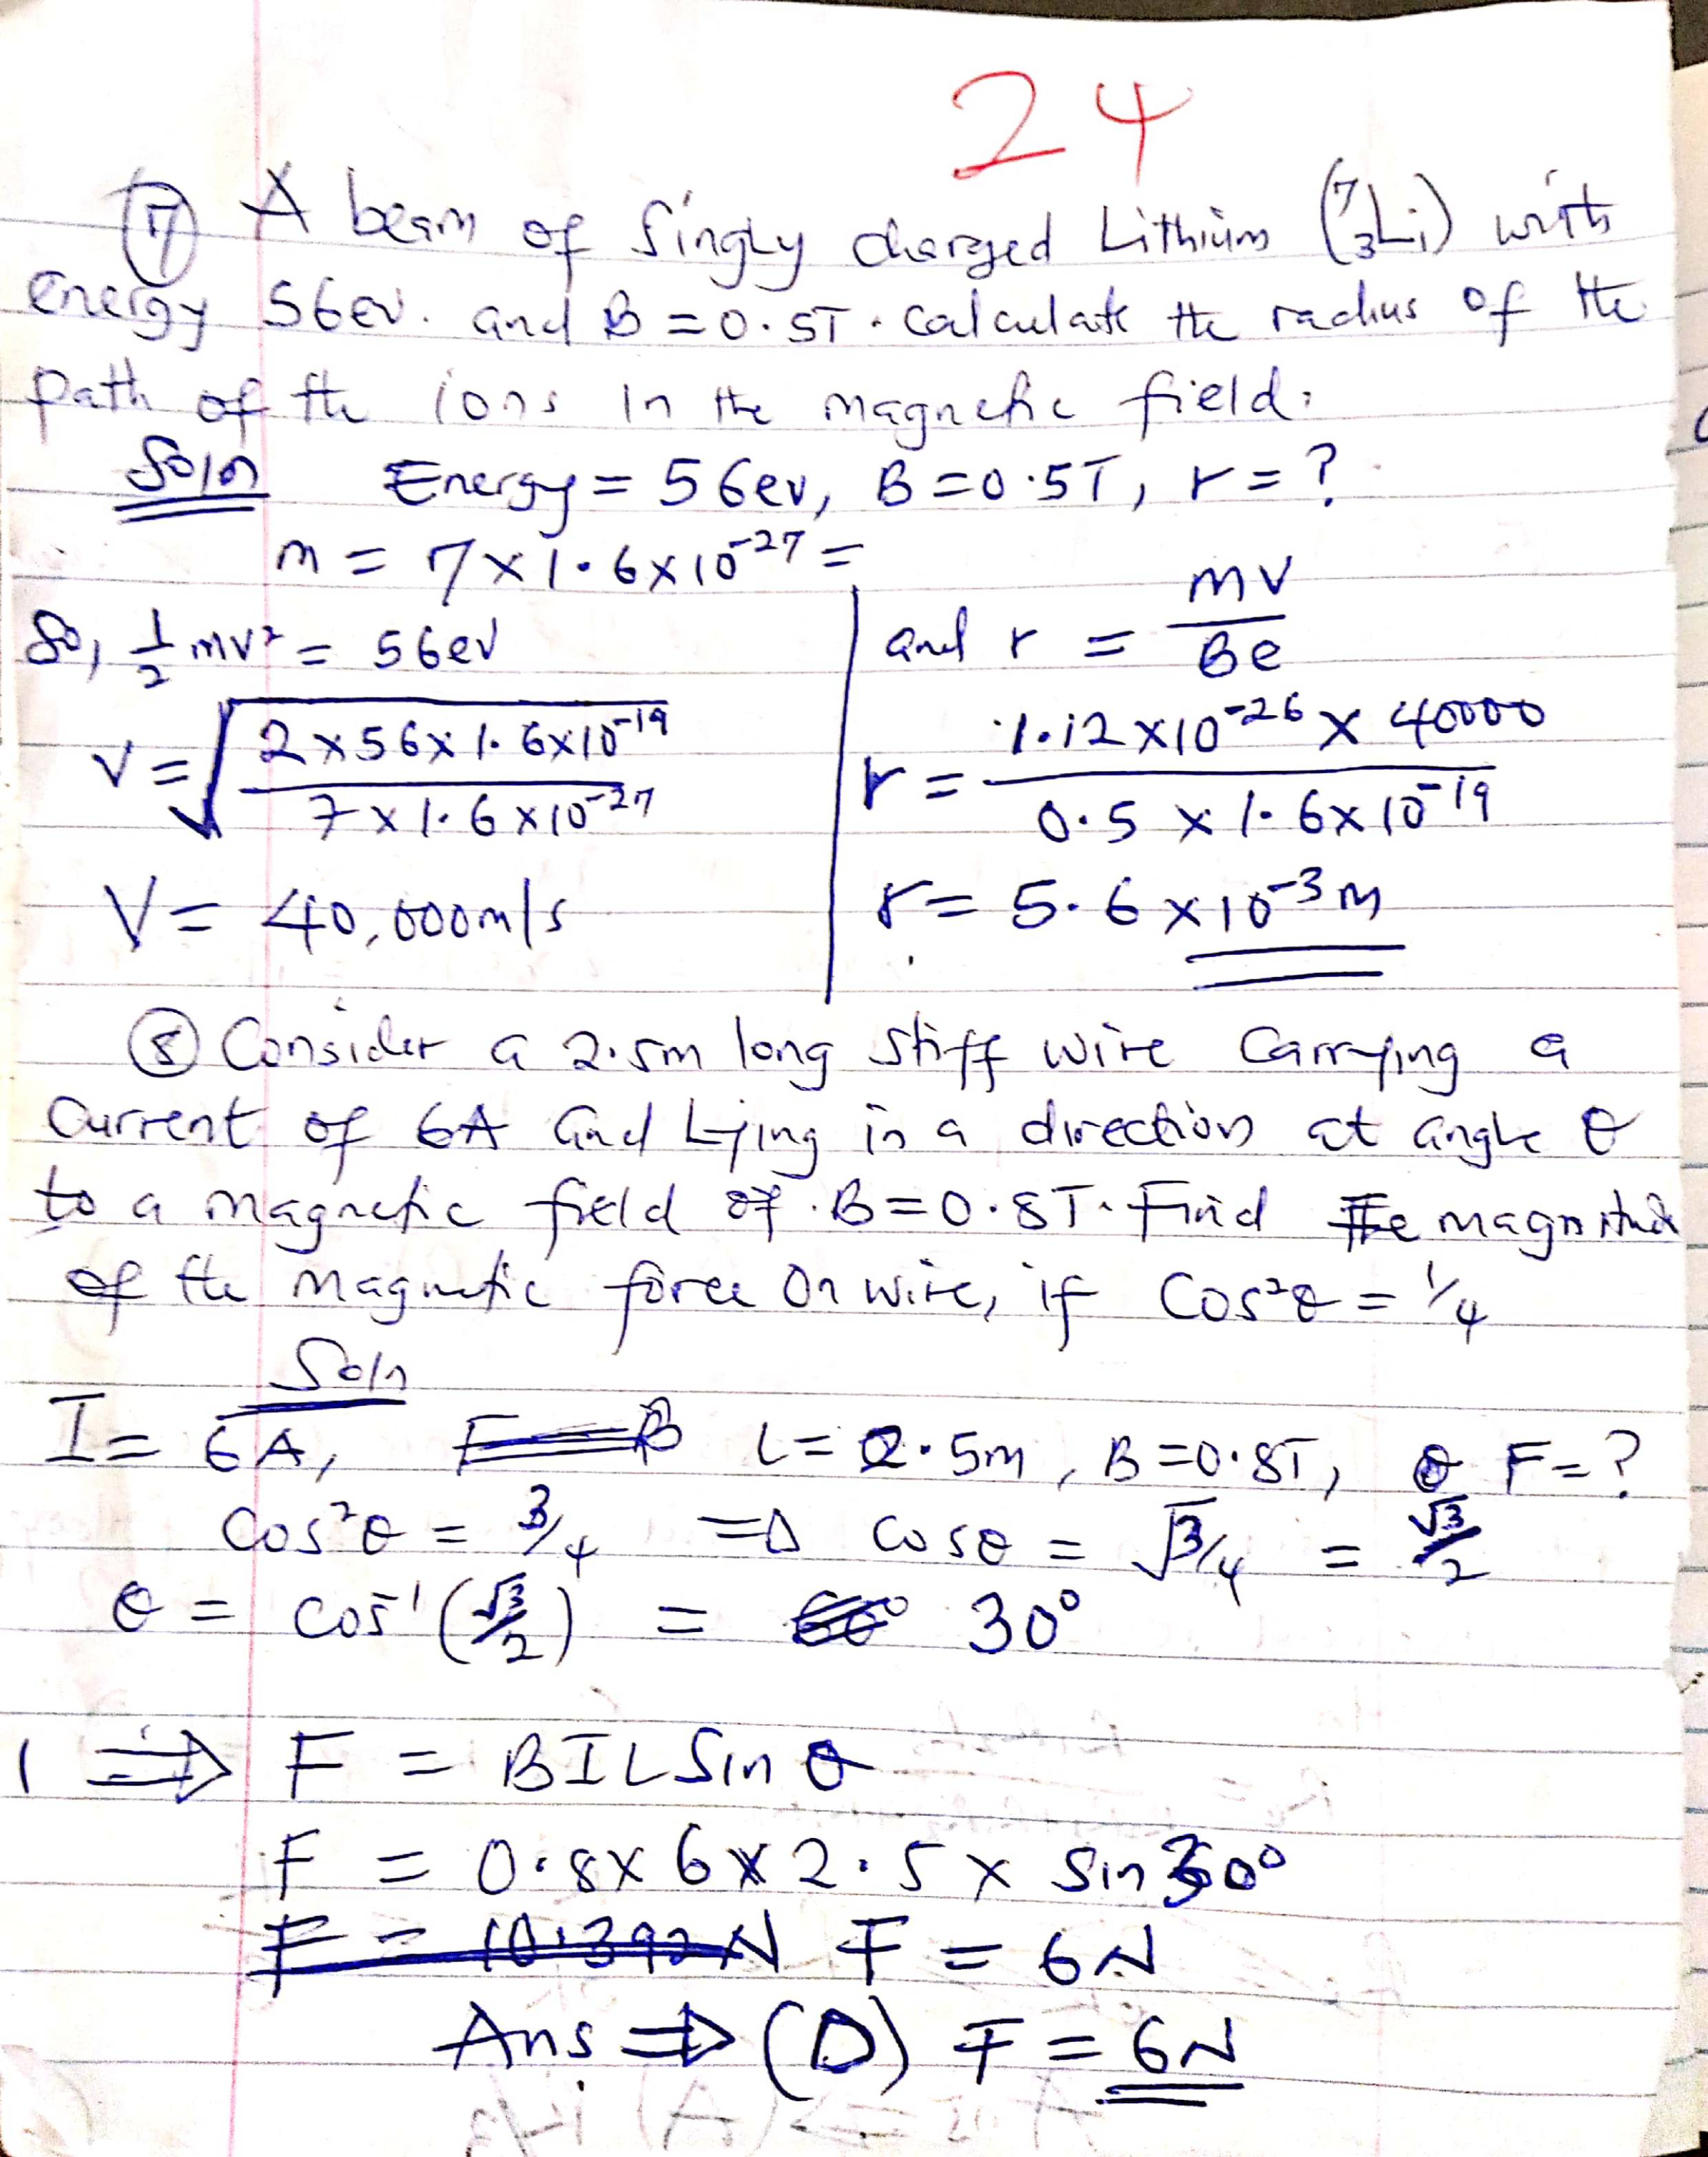 24
⑦ A beam of Singly charged Lithium (⁷₃Li) with
energy 56ev. and B = 0.5T. Calculate the radius of the
path of the ions in the magnetic field.
Soln Energy = 56ev, B = 0.5T, r = ?
m = 7 x 1.6 x 10⁻²⁷ =
So, ½ mv² = 56ev
v = √(2 x 56 x 1.6 x 10⁻¹⁹ / 7 x 1.6 x 10⁻²⁷)
V = 40,000m/s
and r = mv / Be
r = 1.12 x 10⁻²⁶ x 40000 / 0.5 x 1.6 x 10⁻¹⁹
r = 5.6 x 10⁻³ m
⑧ Consider a 2.5m long stiff wire Carrying a
Current of 6A and Lying in a direction at angle θ
to a magnetic field of B = 0.8T. Find the magnitude
of the magnetic force on wire, if Cos²θ = 1/4
Soln
I = 6A, F = B L = 2.5m, B = 0.8T, θ F = ?
Cos²θ = 3/4 => Cosθ = √3/4 = √3/2
θ = cos⁻¹(√3/2) = 60° 30°
1 => F = BIL Sin θ
F = 0.8 x 6 x 2.5 x Sin 30°
F = 10.392N F = 6N
Ans => (D) F = 6N